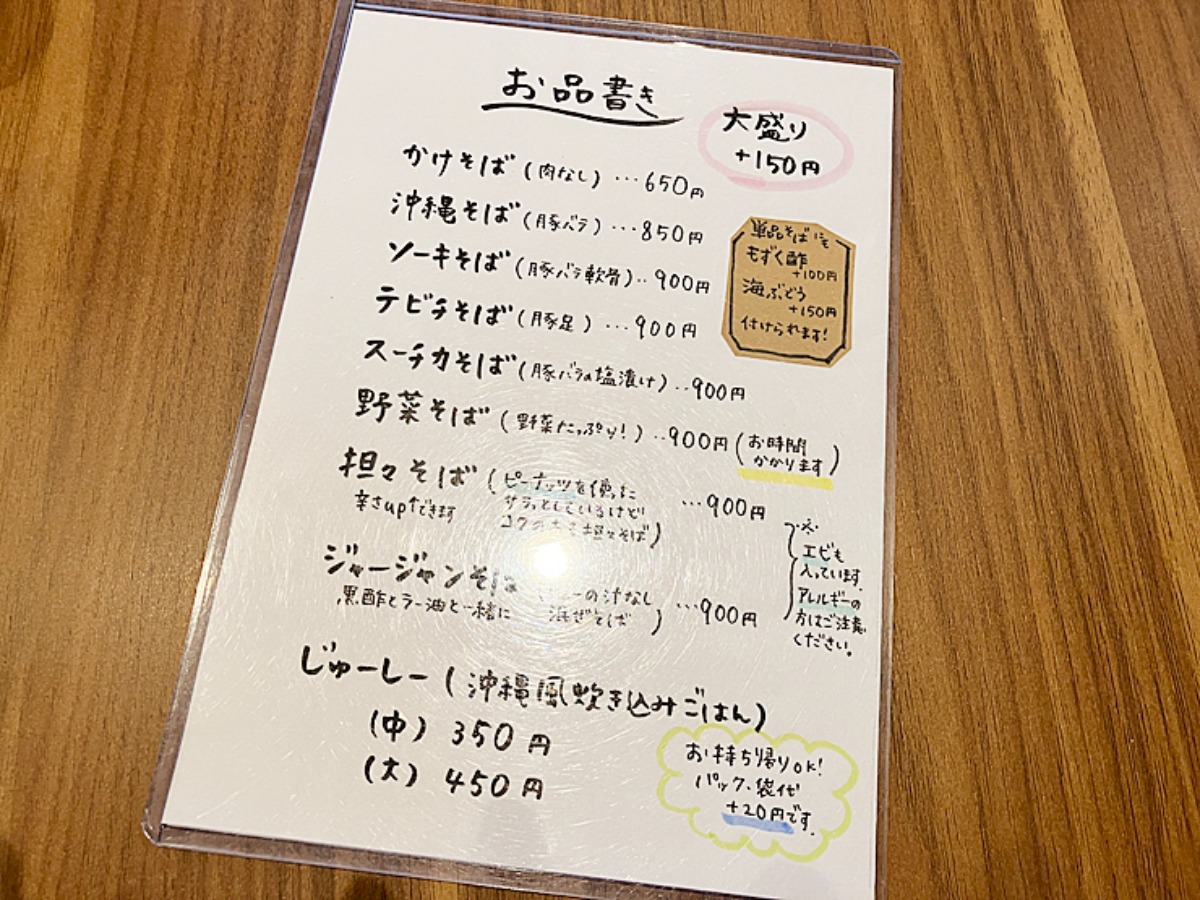 お品書き
大盛り
+150円
かけそば（肉なし）…650円
沖縄そば（豚バラ）…850円
ソーキそば（豚バラ軟骨）‥900円
テビチそば（豚足）…900円
スーチカそば（豚バラの塩漬け）‥900円
野菜そば（野菜たっぷり！）‥900円（お時間
かかります）
単品そばにも
もずく酢
+100円
海ぶどう
+150円
付けられます！
担々そば（ピーナッツを使った
サラッとしているけど
コクのある担々そば）
…900円
辛さup↑できます
ジャージャンそば
の汁なし
混ぜそば）
…900円
黒酢とラー油と一緒に
※
エビも
入っています。
アレルギーの
方はご注意
ください。
じゅーしー（沖縄風炊き込みごはん）
（中）350円
（大）450円
お持ち帰りOK！
パック・袋代
+20円です。